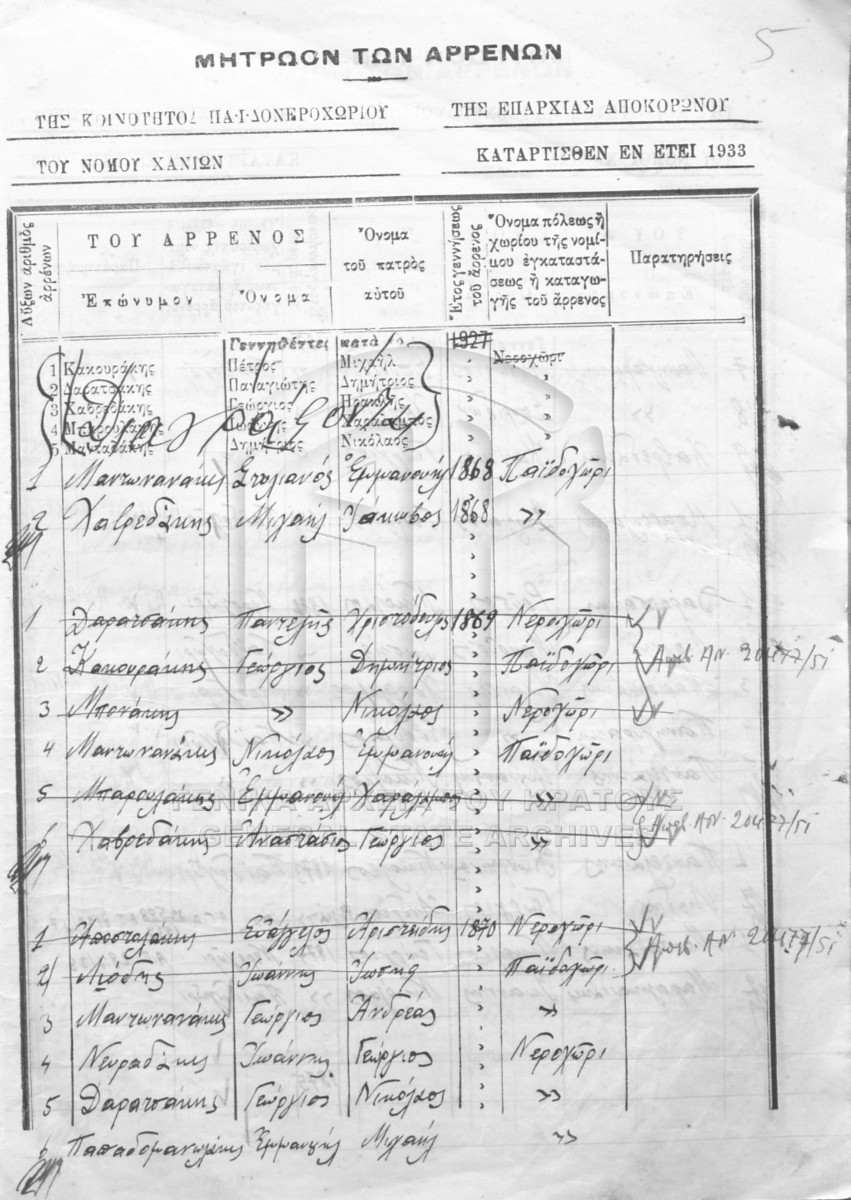 5
ΜΗΤΡΩΟΝ ΤΩΝ ΑΡΡΕΝΩΝ
ΤΗΣ ΚΟΙΝΟΤΗΤΟΣ ΠΑ·Ι·ΔΟΝΕΡΟΧΩΡΙΟΥ ΤΗΣ ΕΠΑΡΧΙΑΣ ΑΠΟΚΟΡΩΝΟΥ
ΤΟΥ ΝΟΜΟΥ ΧΑΝΙΩΝ ΚΑΤΑΡΤΙΣΘΕΝ ΕΝ ΕΤΕΙ 1933
Αὔξων ἀριθμὸς ἀρρένων
ΤΟΥ ΑΡΡΕΝΟΣ
Ἐπώνυμον Ὄνομα
Ὄνομα τοῦ πατρὸς αὐτοῦ
Ἔτος γεννήσεως τοῦ ἄρρενος
Ὄνομα πόλεως ἢ
χωρίου τῆς νομί-
μου ἐγκαταστά-
σεως ἢ καταγω-
γῆς τοῦ ἄρρενος
Παρατηρήσεις
Γεννηθέντες κατὰ 1927
1 Κακουράκης Πέτρος Μιχαὴλ " Νεροχῶρι
2 Δαρατσάκης Παναγιώτης Δημήτριος " "
3 Χαβρεδάκης Γεώργιος Ἡρακλῆς " "
4 Μπαρουλάκης Χαράλαμπος " "
5 Μανταδάκης Δημήτριος Νικόλαος " "
Διαγράφονται
1 Μαντωνανάκης Στυλιανός Ἐμμανουήλ 1868 Παϊδοχῶρι
2 Χαβρεδάκης Μιχαήλ Ἰάκωβος 1868 »
1 Δαρατσάκης Παντελῆς Χριστόδουλος 1869 Νεροχῶρι
2 Κακουράκης Γεώργιος Δημήτριος " Παϊδοχῶρι Ἀποφ. Αν. 20477/51
3 Μπονάκης » Νικόλαος " Νεροχῶρι
4 Μαντωνανάκης Νικόλαος Ἐμμανουήλ " Παϊδοχῶρι
5 Μπαρουλάκης Ἐμμανουήλ Χαράλαμπος " »
6 Χαβρεδάκης Ἀναστάσιος Γεώργιος " » Ἀποφ. Αν. 20477/51
ΓΕΝΙΚΑ ΑΡΧΕΙΑ ΤΟΥ ΚΡΑΤΟΥΣ
GENERAL STATE ARCHIVES
1 Ἀποστολάκης Εὐάγγελος Ἀριστείδης 1870 Νεροχῶρι
2 Λιόδης Ἰωάννης Ἰωσήφ " Παϊδοχῶρι Ἀποφ. Αν. 20477/51
3 Μαντωνανάκης Γεώργιος Ἀνδρέας " »
4 Νευραδάκης Ἰωάννης Γεώργιος " Νεροχῶρι
5 Δαρατσάκης Γεώργιος Νικόλαος " »
6 Παπαδομανωλάκης Ἐμμανουήλ Μιχαήλ »